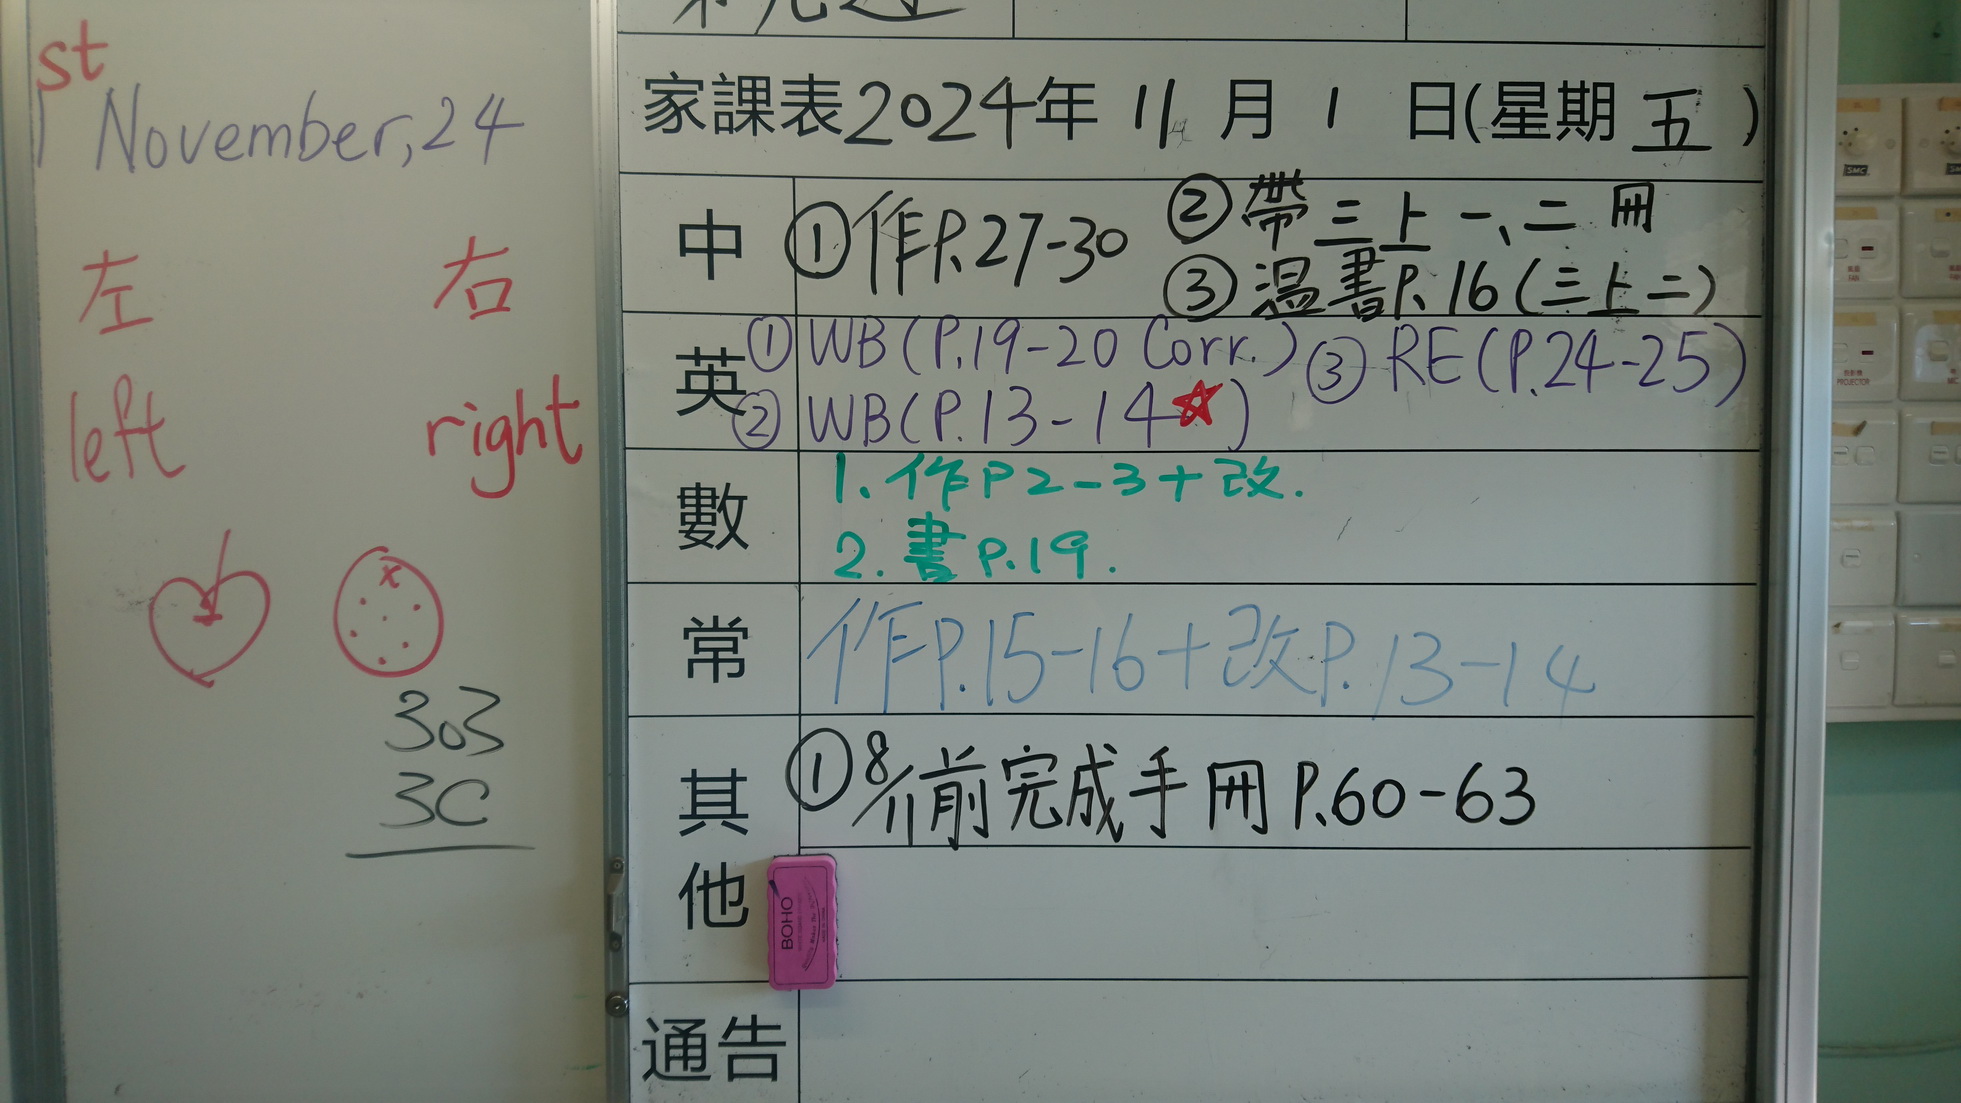 st
1 November, 24
左 右
left right
303
3C
家課表2024年 11 月 1 日(星期 五 )
中 ①作P.27-30 ②帶三上一、二冊
③溫書P.16(三上二)
英 ①WB(P.19-20 Corr.) ③RE(P.24-25)
②WB(P.13-14☆)
數 1.作P2-3+改.
2.書P.19.
常 作P.15-16+改P.13-14
其他 ①8/11前完成手冊P.60-63
BOHO
通告